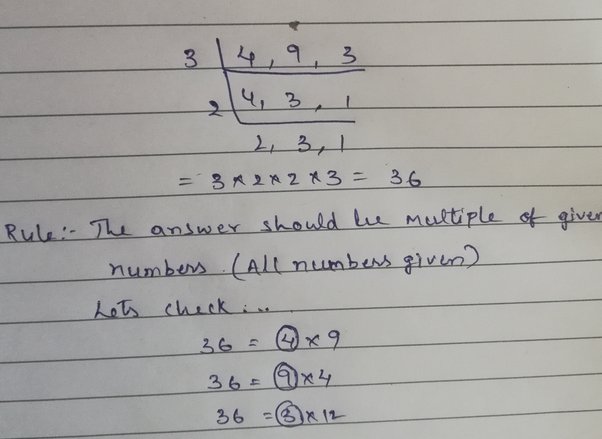 3 | 4, 9, 3
2 | 4, 3, 1
2, 3, 1
= 3 × 2 × 2 × 3 = 36
Rule:- The answer should be multiple of given
numbers. (All numbers given)
Lets check...
36 = 4 × 9
36 = 9 × 4
36 = 3 × 12